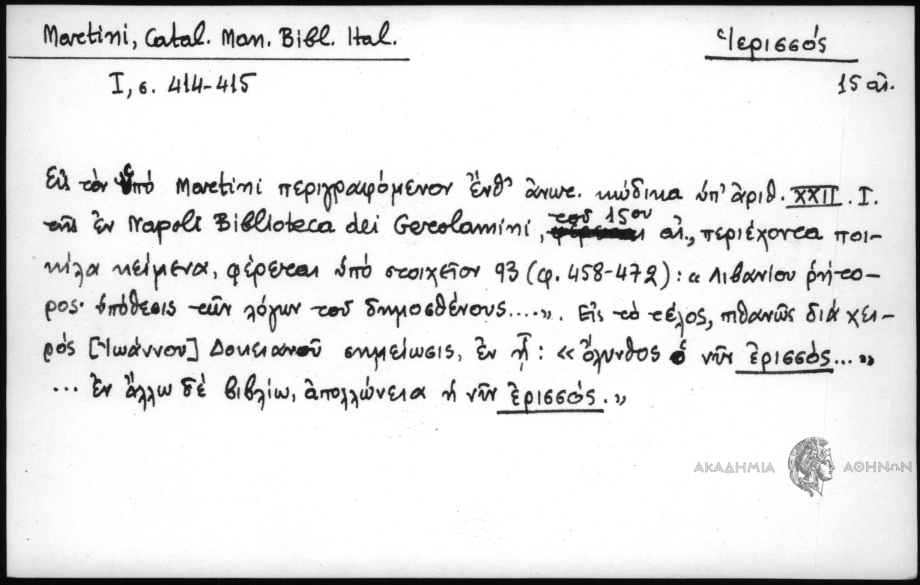 Martini, Catal. Man. Bibl. Ital.
Ἱερισσός
I, σ. 414-415
15 αἰ.
Εἰς τὸν ὑπό Martini περιγραφόμενον ἔνθ' ἀνωτ. κώδικα ὑπ' ἀριθ. XXII. I.
τῆς ἐν Napoli Biblioteca dei Gerolamini, τοῦ 15ου αἰ., περιέχοντα ποι-
κίλα κείμενα, φέρεται ὑπό στοιχεῖον 93 (φ. 458-472) : « Λιβανίου ῥήτο-
ρος· ὑπόθεσις τῶν λόγων τοῦ δημοσθένους.... ». Εἰς τό τέλος, πιθανῶς διά χει-
ρός [Ἰωάννου] Δοκειανοῦ σημείωσις, ἐν ᾗ : « ὄλυνθος ὁ νῦν ἐρισσός... »
... ἐν ἄλλω δέ βιβλίω, ἀπολλώνεια ἡ νῦν ἐρισσός. »
ΑΚΑΔΗΜΙΑ ΑΘΗΝΩΝ